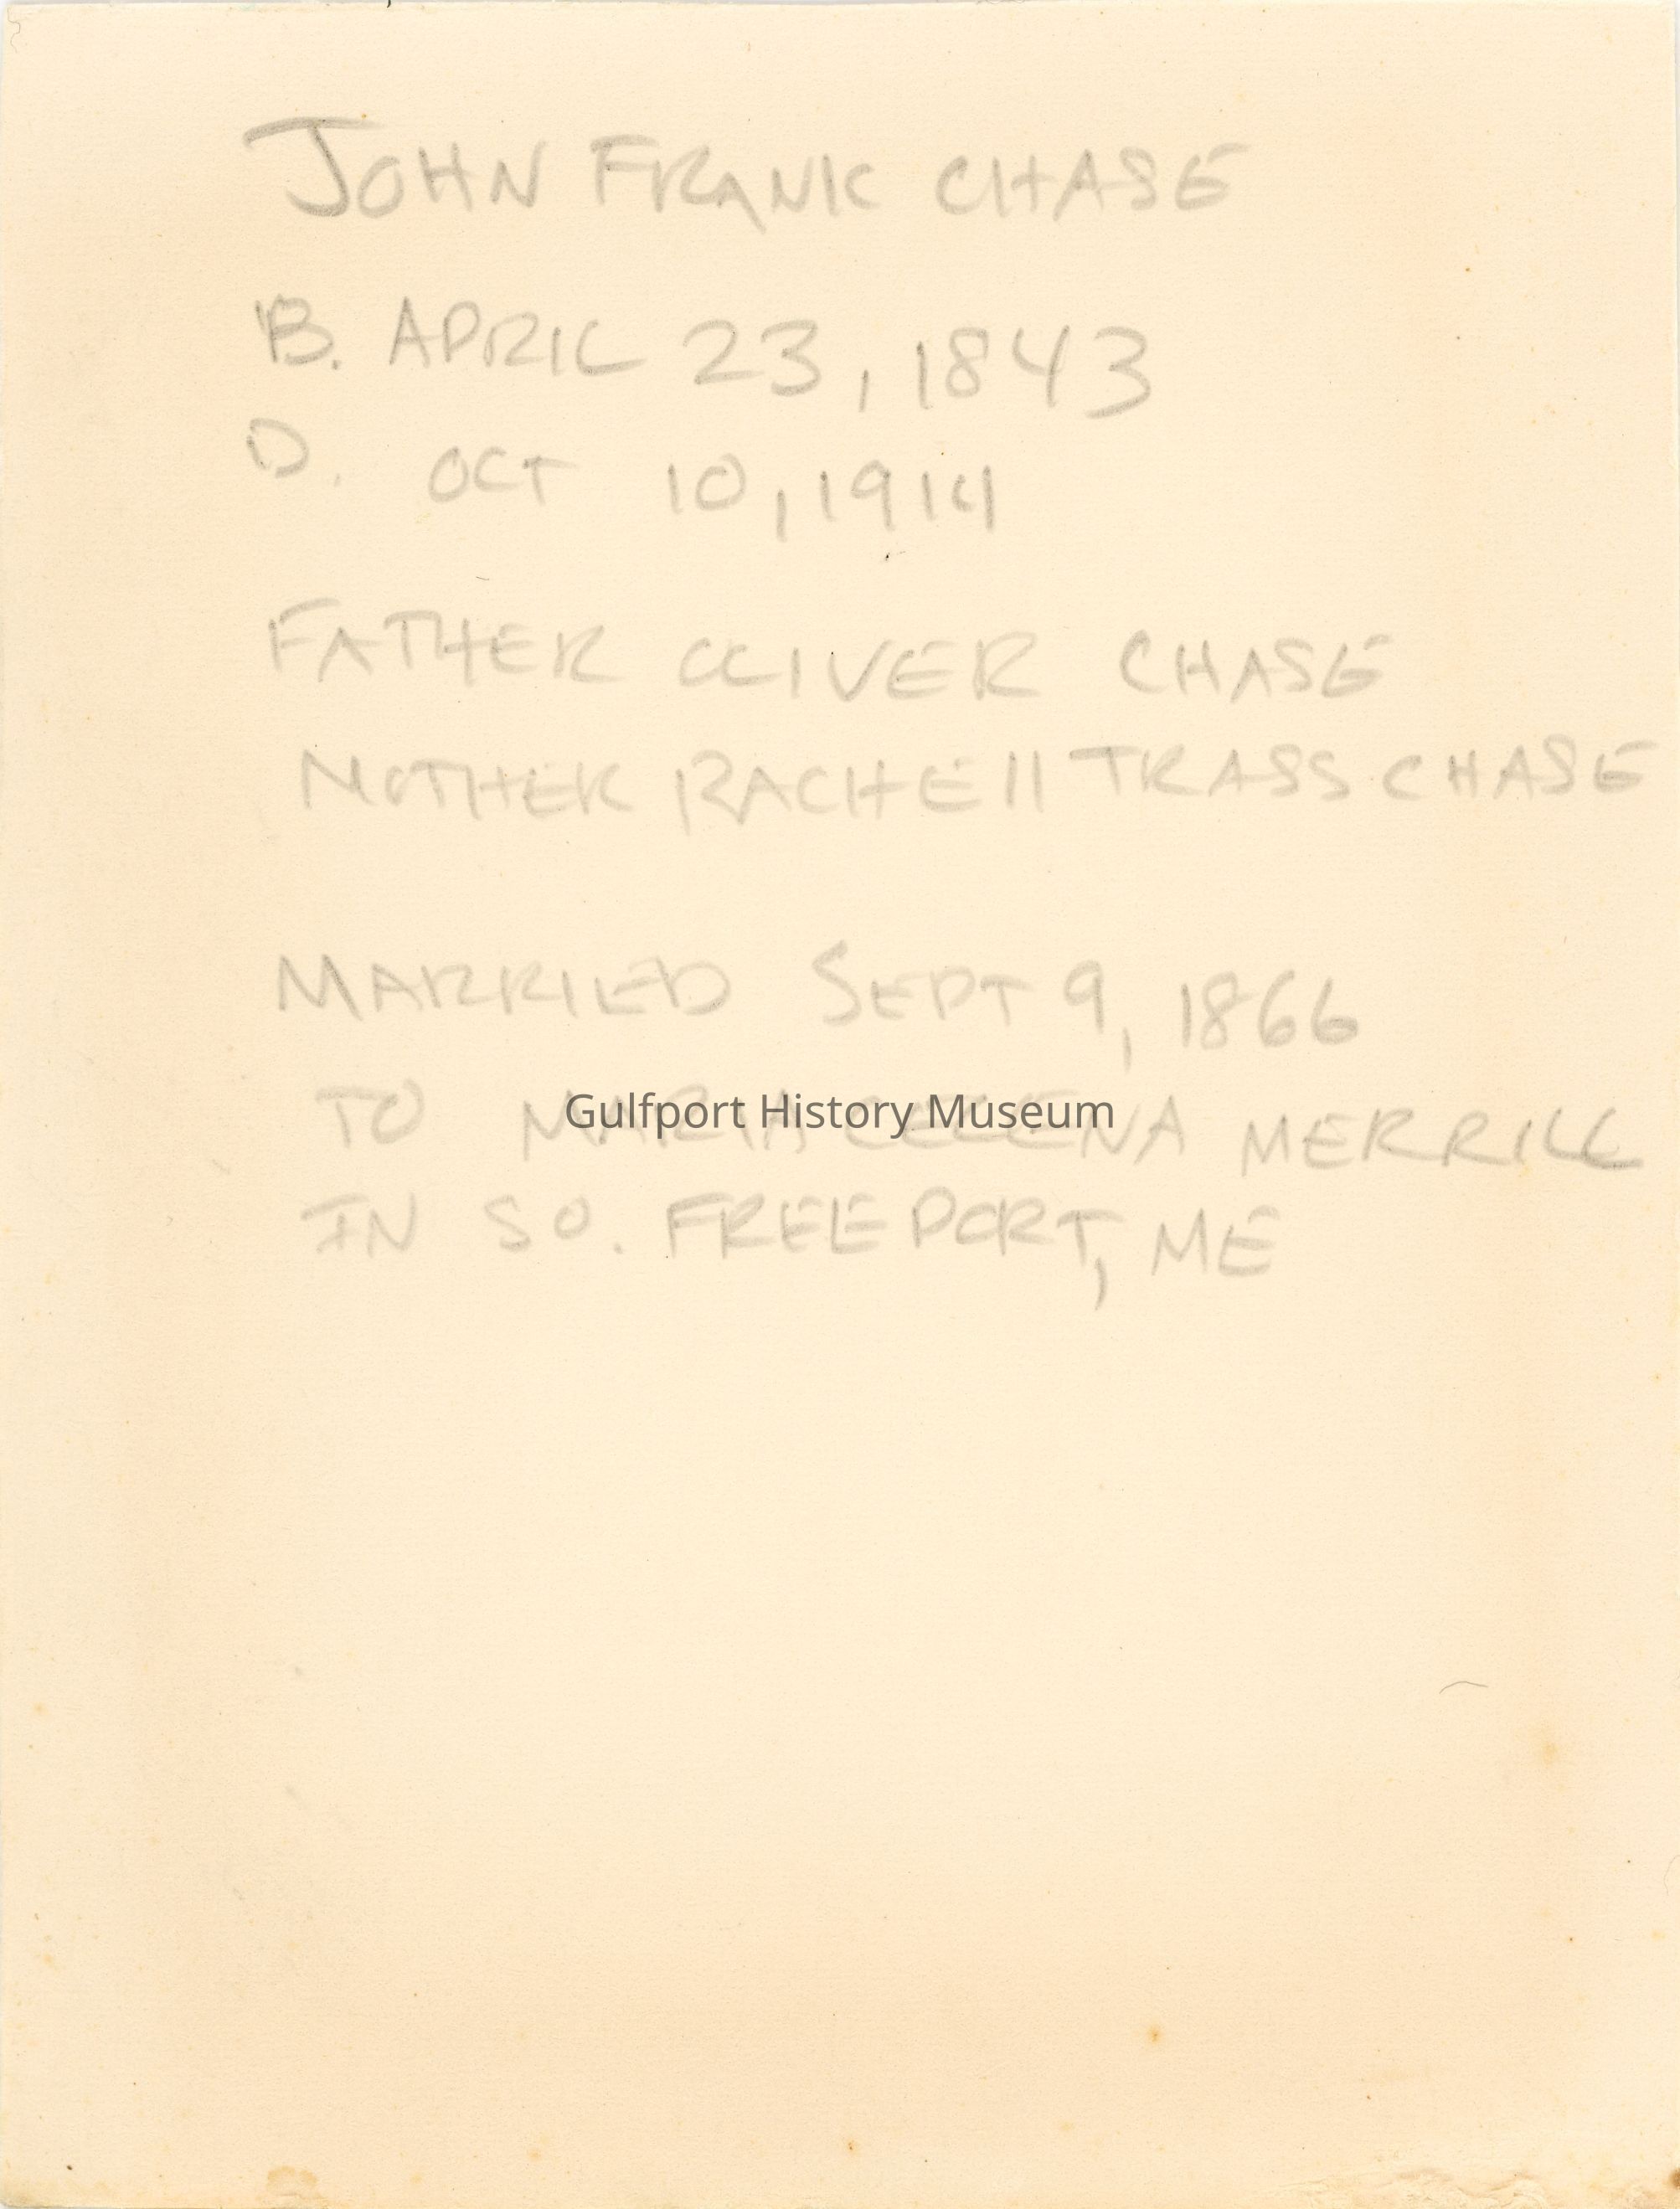 JOHN FRANK CHASE
B. APRIL 23, 1843
D. OCT 10, 1914
FATHER OLIVER CHASE
MOTHER RACHEll TRASS CHASE
MARRIED SEPT 9, 1866
TO MARIA MERRILL
Gulfport History Museum
IN SO. FREEPORT, ME